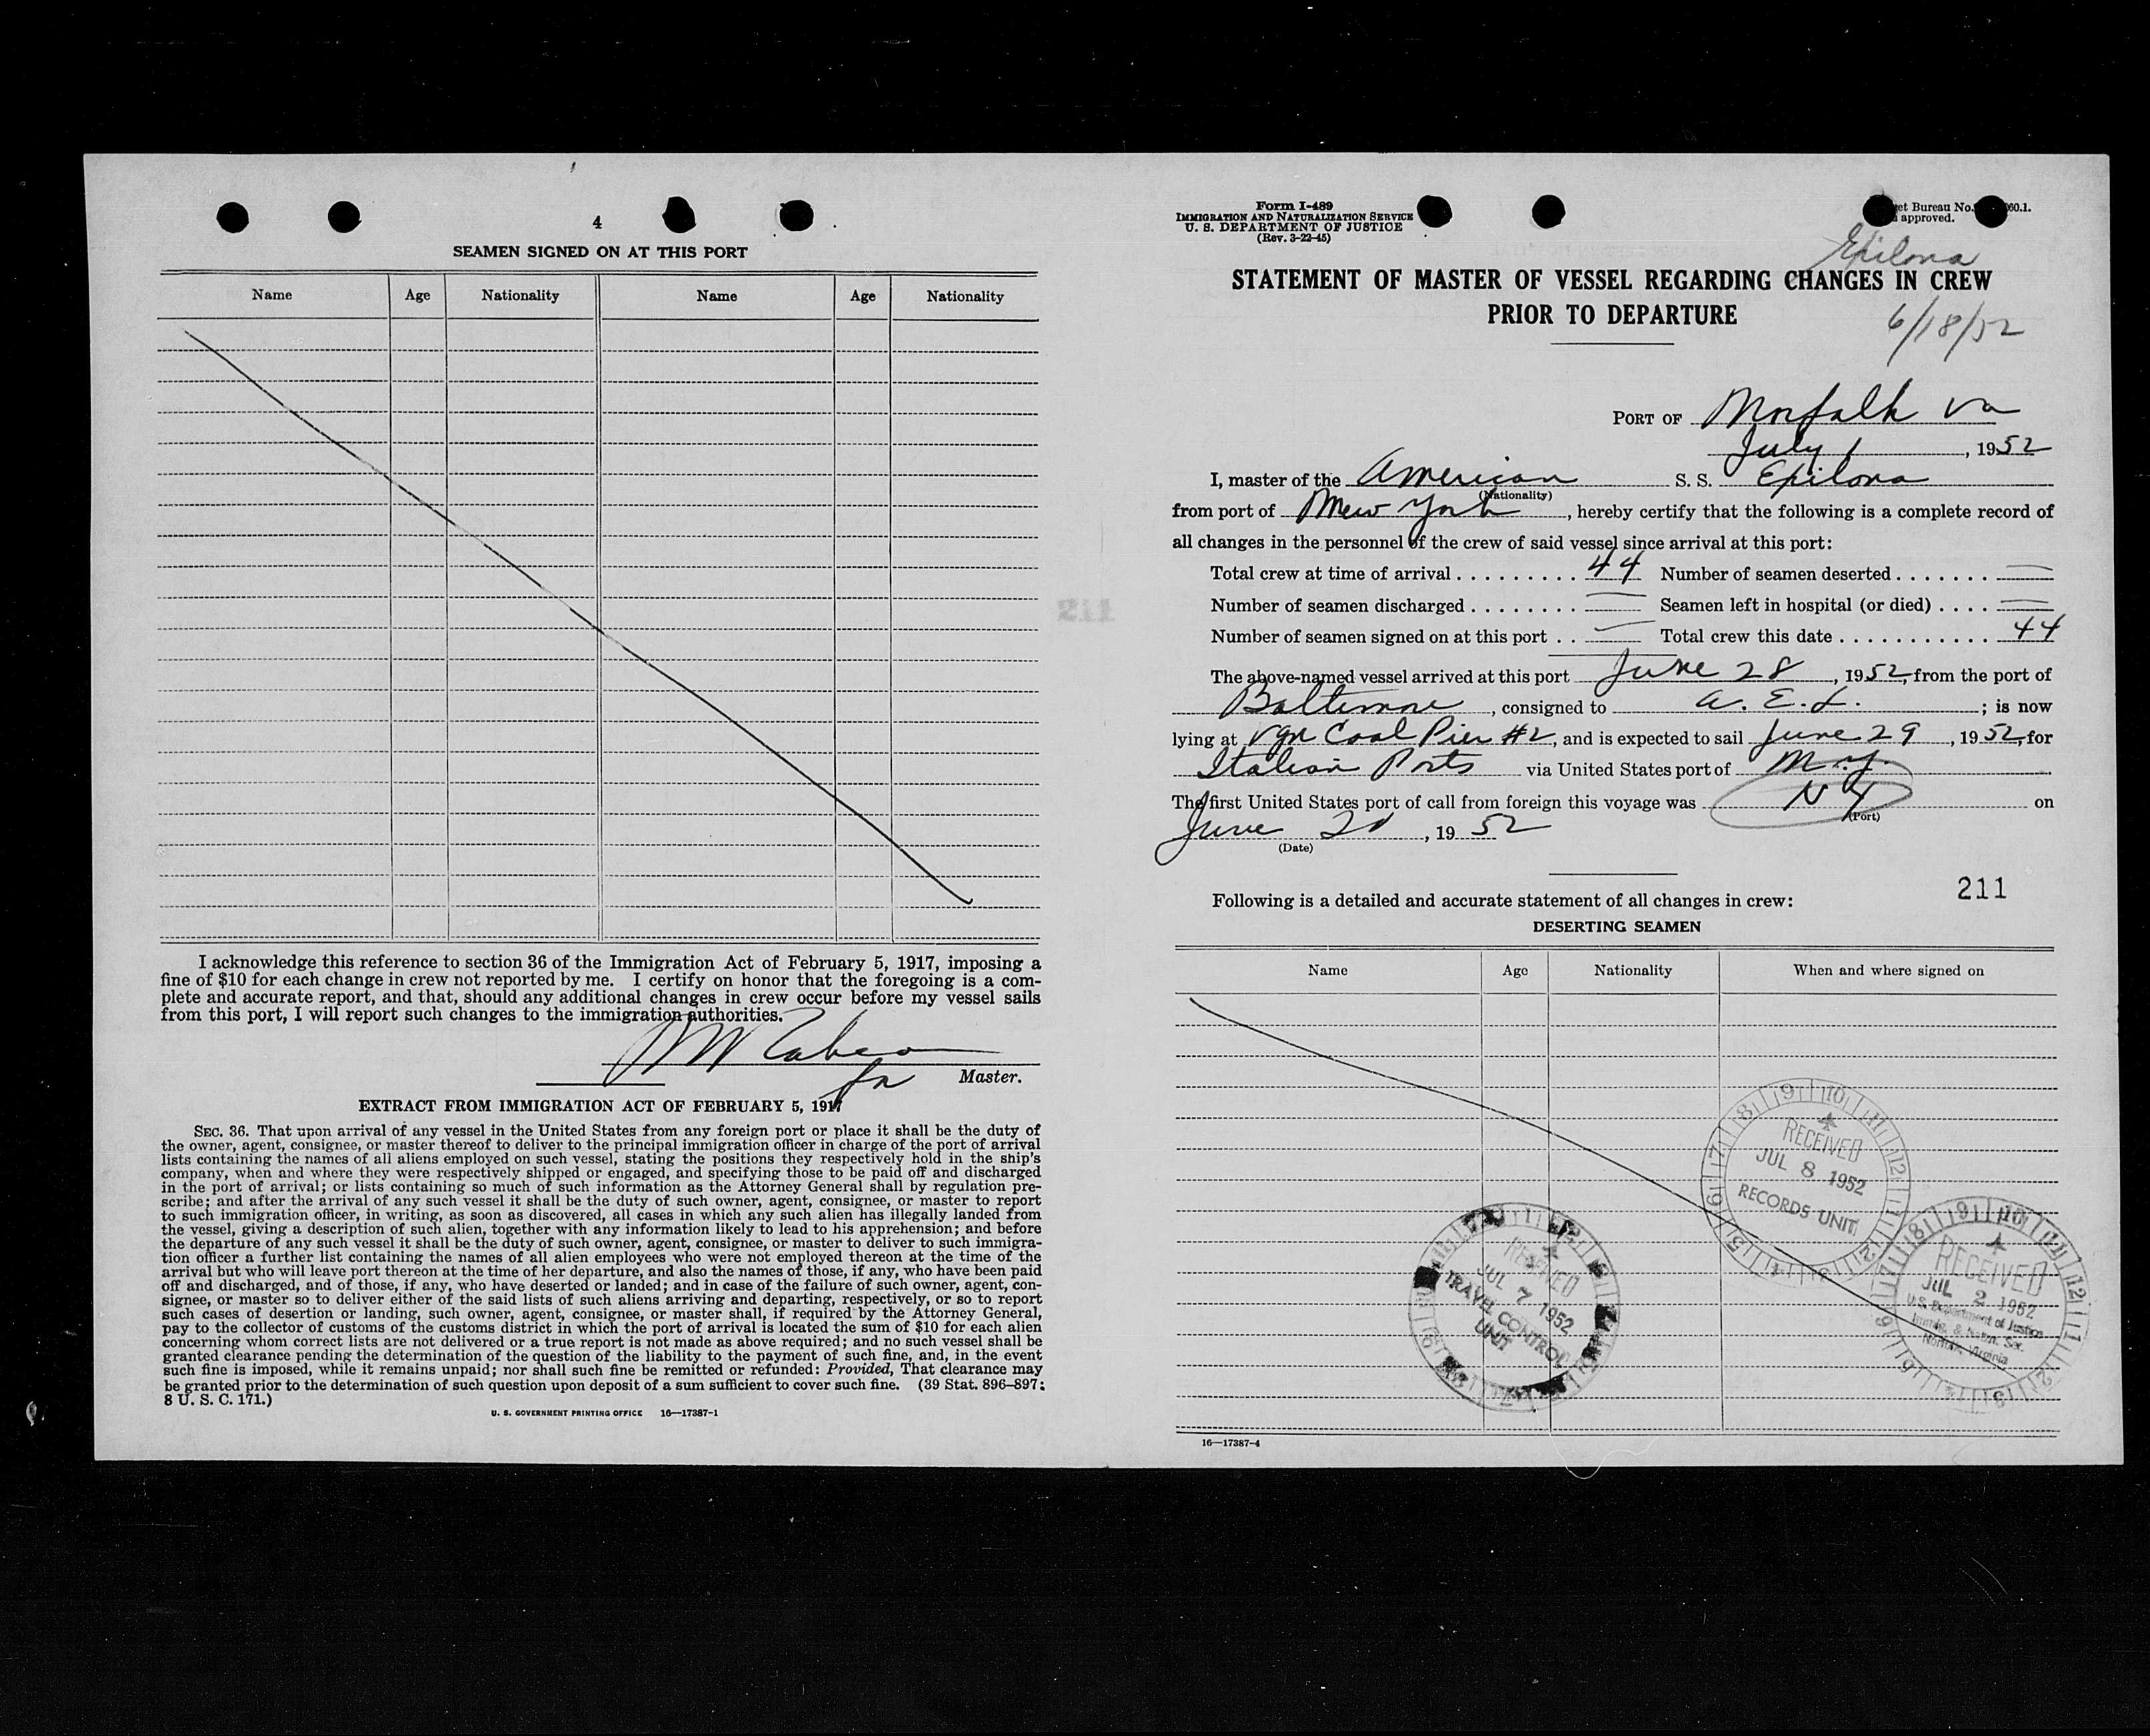 4
SEAMEN SIGNED ON AT THIS PORT
Name Age Nationality Name Age Nationality
I acknowledge this reference to section 36 of the Immigration Act of February 5, 1917, imposing a
fine of $10 for each change in crew not reported by me. I certify on honor that the foregoing is a com-
plete and accurate report, and that, should any additional changes in crew occur before my vessel sails
from this port, I will report such changes to the immigration authorities.
Master.
EXTRACT FROM IMMIGRATION ACT OF FEBRUARY 5, 1917
SEC. 36. That upon arrival of any vessel in the United States from any foreign port or place it shall be the duty of
the owner, agent, consignee, or master thereof to deliver to the principal immigration officer in charge of the port of arrival
lists containing the names of all aliens employed on such vessel, stating the positions they respectively hold in the ship's
company, when and where they were respectively shipped or engaged, and specifying those to be paid off and discharged
in the port of arrival; or lists containing so much of such information as the Attorney General shall by regulation pre-
scribe; and after the arrival of any such vessel it shall be the duty of such owner, agent, consignee, or master to report
to such immigration officer, in writing, as soon as discovered, all cases in which any such alien has illegally landed from
the vessel, giving a description of such alien, together with any information likely to lead to his apprehension; and before
the departure of any such vessel it shall be the duty of such owner, agent, consignee, or master to deliver to such immigra-
tion officer a further list containing the names of all alien employees who were not employed thereon at the time of the
arrival but who will leave port thereon at the time of her departure, and also the names of those, if any, who have been paid
off and discharged, and of those, if any, who have deserted or landed; and in case of the failure of such owner, agent, con-
signee, or master so to deliver either of the said lists of such aliens arriving and departing, respectively, or so to report
such cases of desertion or landing, such owner, agent, consignee, or master shall, if required by the Attorney General,
pay to the collector of customs of the customs district in which the port of arrival is located the sum of $10 for each alien
concerning whom correct lists are not delivered or a true report is not made as above required; and no such vessel shall be
granted clearance pending the determination of the question of the liability to the payment of such fine, and, in the event
such fine is imposed, while it remains unpaid; nor shall such fine be remitted or refunded: Provided, That clearance may
be granted prior to the determination of such question upon deposit of a sum sufficient to cover such fine. (39 Stat. 896–897;
8 U. S. C. 171.)
U. S. GOVERNMENT PRINTING OFFICE 16—17387-1
Form I-489
IMMIGRATION AND NATURALIZATION SERVICE
U. S. DEPARTMENT OF JUSTICE
(Rev. 3-22-45)
Bureau No. 060.1.
approved.
Epilona
STATEMENT OF MASTER OF VESSEL REGARDING CHANGES IN CREW
PRIOR TO DEPARTURE
6/18/52
PORT OF Norfolk Va
July 1, 1952
I, master of the American S. S. Epilona
(Nationality)
from port of New York, hereby certify that the following is a complete record of
all changes in the personnel of the crew of said vessel since arrival at this port:
Total crew at time of arrival 44 Number of seamen deserted —
Number of seamen discharged — Seamen left in hospital (or died) —
Number of seamen signed on at this port — Total crew this date 44
The above-named vessel arrived at this port June 28, 1952, from the port of
Baltimore, consigned to A. E. L. ; is now
lying at Vgn Coal Pier #2, and is expected to sail June 29, 1952, for
Italian Ports via United States port of N.Y.
The first United States port of call from foreign this voyage was NY on
(Port)
June 21, 1952
(Date)
211
Following is a detailed and accurate statement of all changes in crew:
DESERTING SEAMEN
Name Age Nationality When and where signed on
RECEIVED
JUL 8 1952
RECORDS UNIT
RECEIVED
JUL 7 1952
TRAVEL CONTROL
UNIT
RECEIVED
JUL 2 1952
U.S. Department of Justice
Immig. & Natn. Ser.
Norfolk, Virginia
16—17387-4